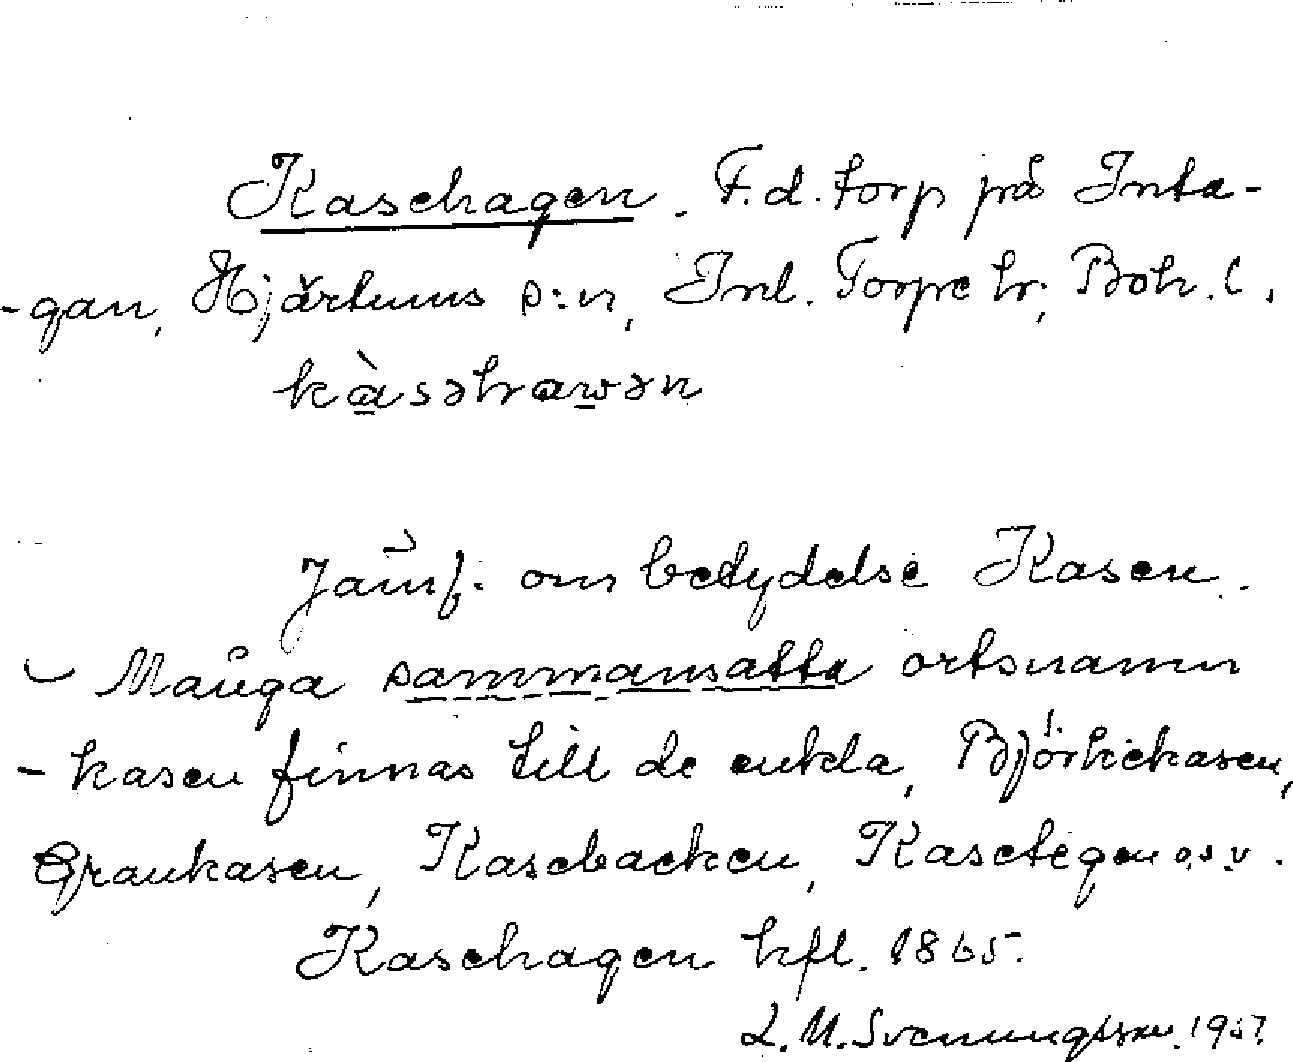 Kasehagen. F.d. torp på Inta-
-gan, Hjärtums s:n, Inl. Torpe hr, Boh. l.
kàsəhawən
Jämf. om betydelse Kasen.
- Många sammansatta ortsnamn
- kasen finnas till de enkla, Björkekasen,
Grankasen, Kasebacken, Kasetegen o.s.v.
Kasehagen hfl. 1865.
L. M. Svenungsson.